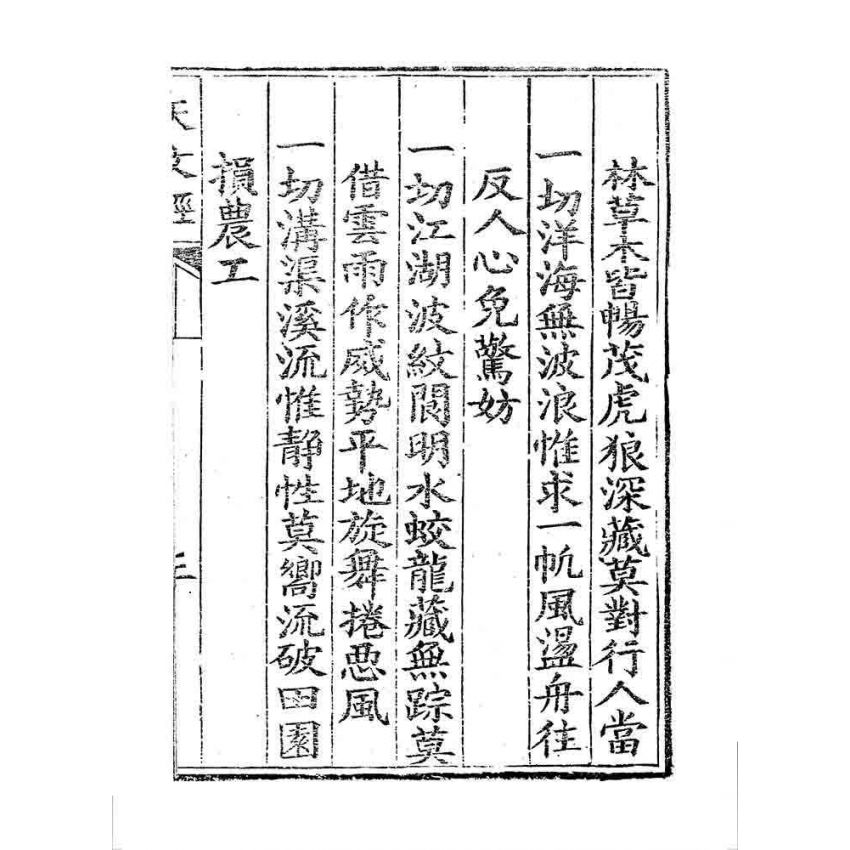 林草木皆暢茂虎狼深藏莫對行人當
一切洋海無波浪惟求一帆風盪舟往
反人心免驚妨
一切江湖波紋閬明水蛟龍藏無踪莫
借雲雨作威勢平地旋舞捲恶風
一切溝渠溪流惟静性莫嚮流破田園
損農工
天文經